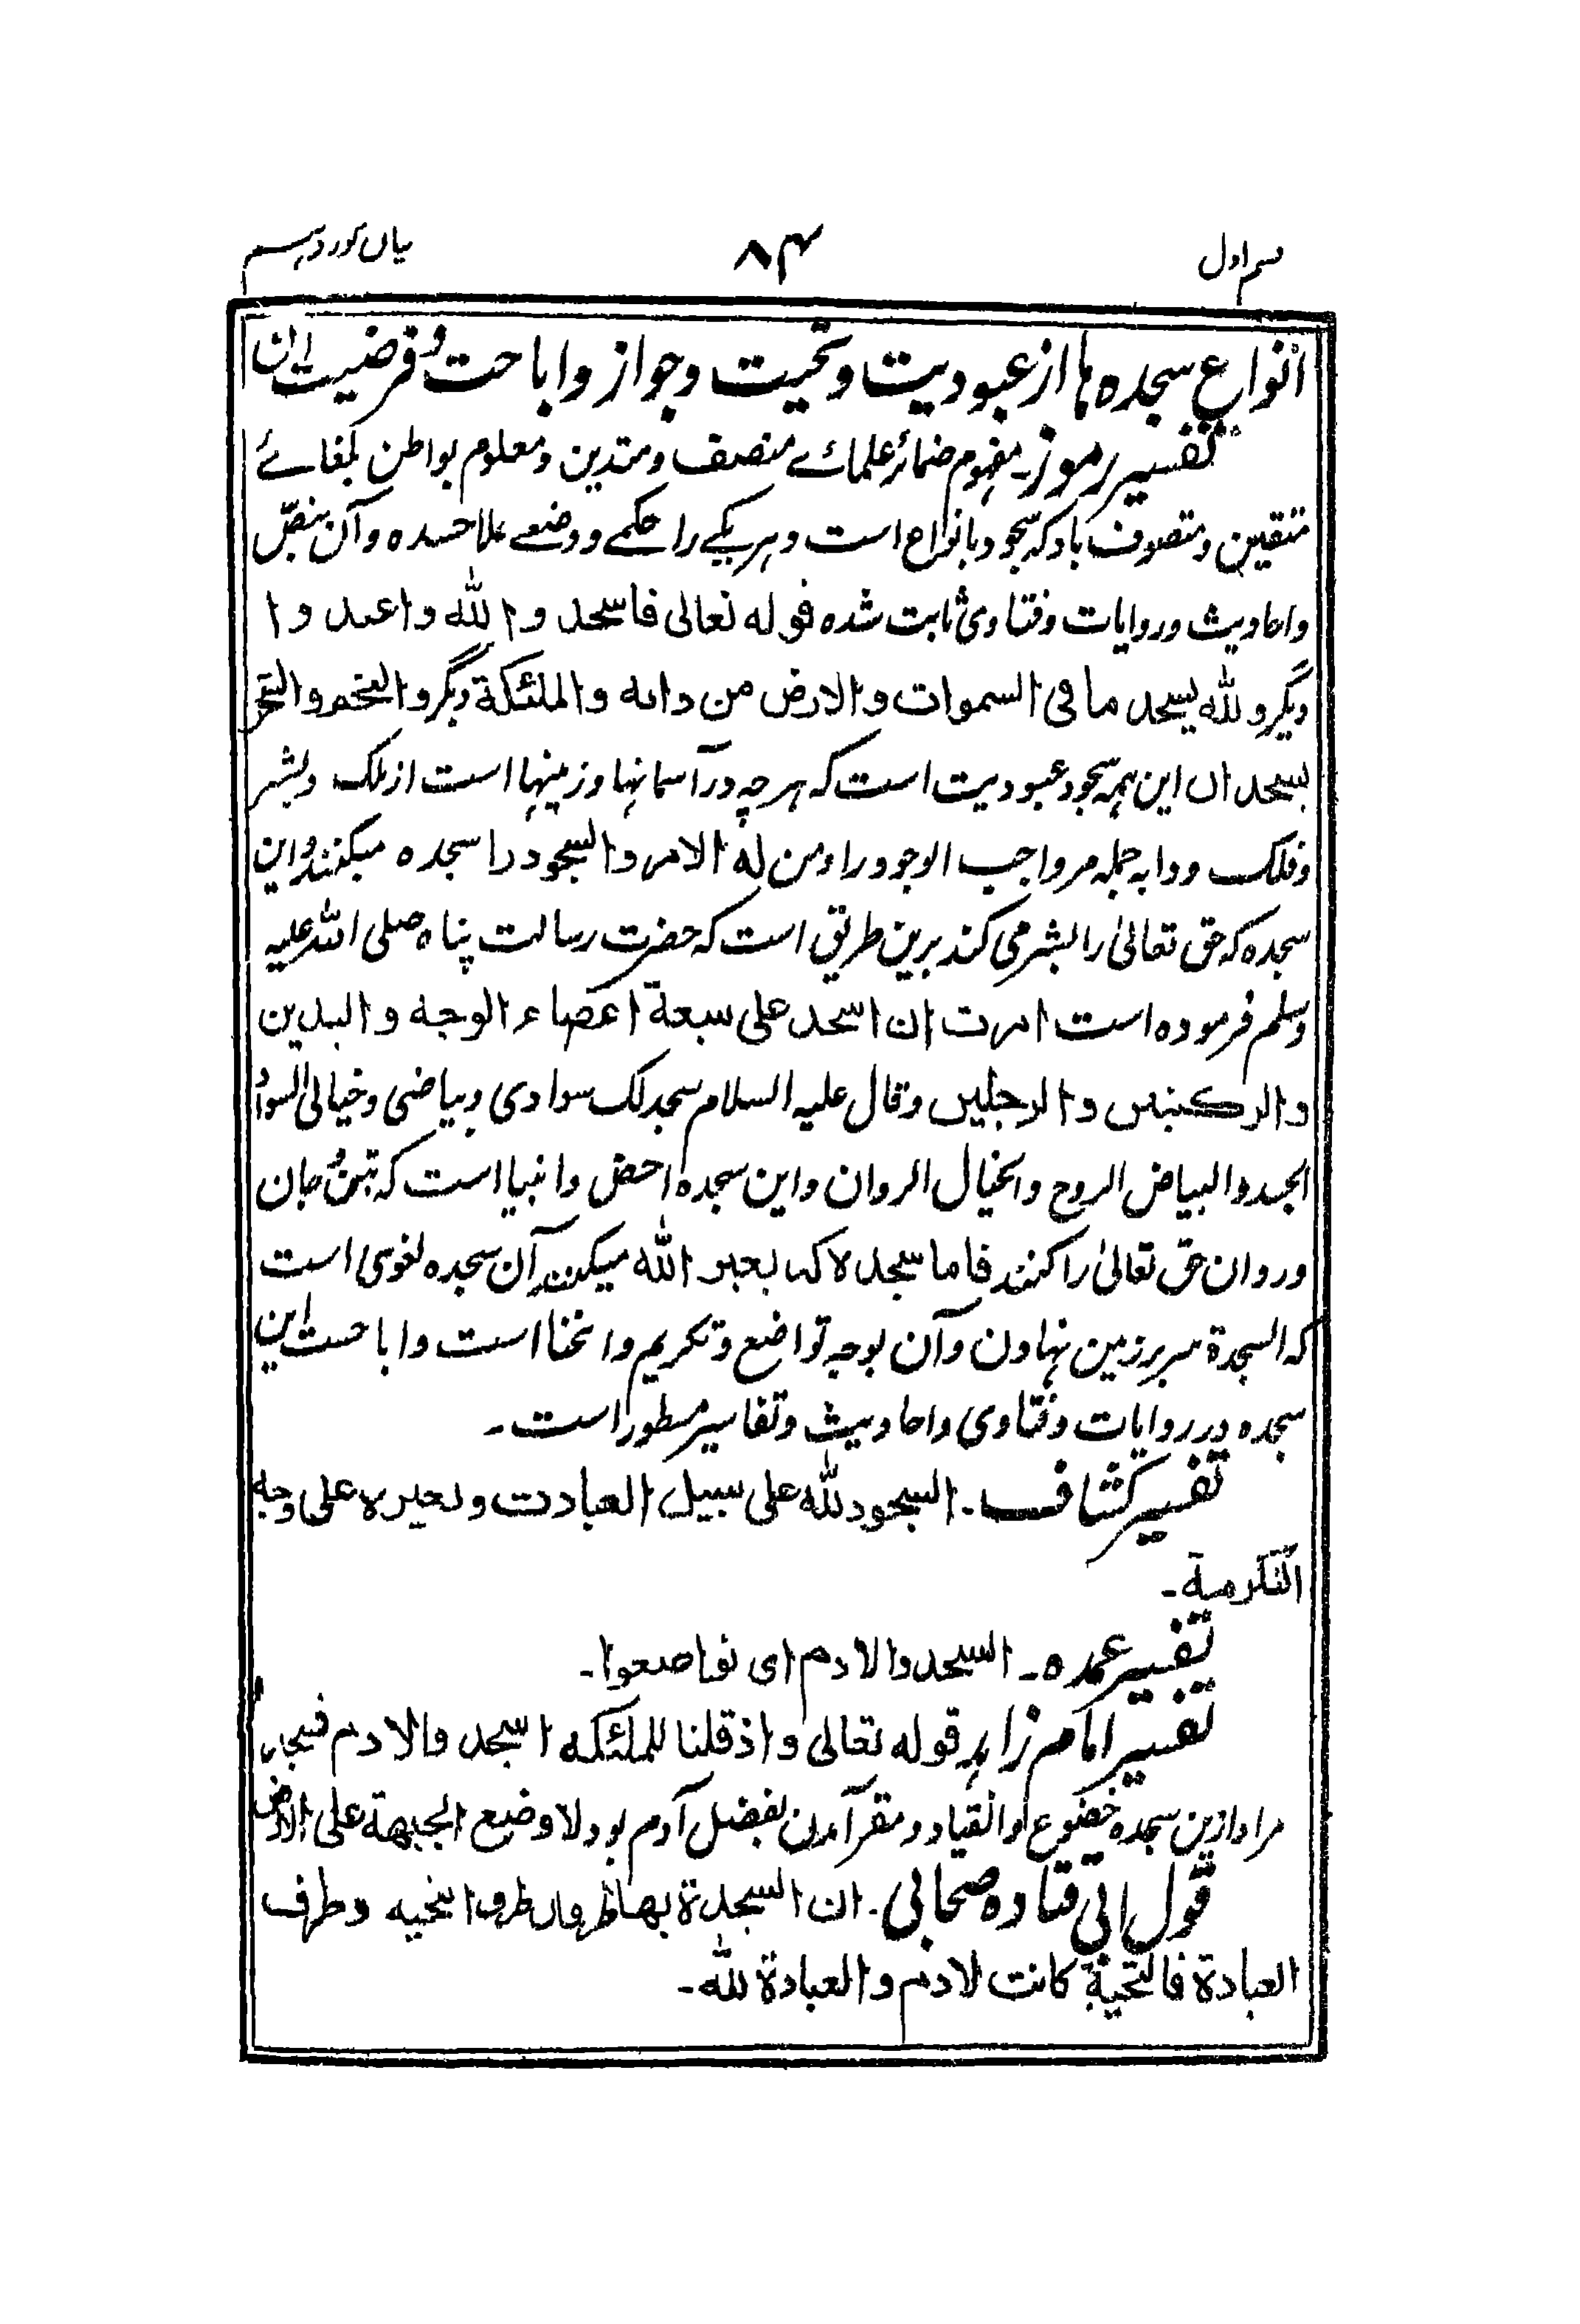 قسم اول ۸۴
انواع سجده ها از عبودیت و تحیت و جواز و اباحت و فرضیت آن
تفسیر رموز۔ مفهوم ضمائر علمائے منصف و متدین و معلوم بواطن بلغائے
متقین و متصوف باد که سجود بانواع است و هر یکے را حکمے و وضعے علاحده و آن بنص
و احادیث و روایات و فتاوی ثابت شده قوله تعالی فاسجدوا لله واعبدوا
دیگر ولله یسجد ما فی السموات والارض من دابه والملئکة دیگر والنجم والشجر
یسجدان این همه سجود عبودیت است که هر چه در آسمانها و زمینها است از ملک و بشر
و فلک و دابه جمله مر واجب الوجود را ومن له الامر والسجود را سجده میکنند و این
سجده که حق تعالیٰ را بشر می کند برین طریق است که حضرت رسالت پناه صلی الله علیه
وسلم فرموده است امرت ان اسجد علی سبعة اعضاء الوجه والیدین
والرکبتین والرجلین وقال علیه السلام سجد لک سوادی و بیاضی و خیالی السواد
الجسد والبیاض الروح والخیال الروان و این سجده اخص و انبیا است که بتن و جان
و روان حق تعالیٰ را کنند فاما سجده لا که بغیر الله میکنند آن سجده لغوی است
که السجدة سر بر زمین نهادن و آن بوجه تواضع و تکریم و انحنا است و اباحت این
سجده در روایات و فتاوی و احادیث و تفاسیر مسطور است۔
تفسیر کشاف۔ السجود لله علی سبیل العبادت ولغیره علی وجه
التکرمیة۔
تفسیر عمده۔ اسجدوا لادم ای تواضعوا۔
تفسیر امام زاهد قوله تعالی واذ قلنا للملئکه اسجدوا لادم فسجدوا
مراد ازین سجده خضوع و انقیاد و مقر آمدن بفضل آدم بود لا وضع الجبهة علی الارض
قول ابی قتاده صحابی۔ ان السجدة بها طرفان طرف التحیه وطرف
العبادة فالتحیة کانت لادم والعبادة لله۔